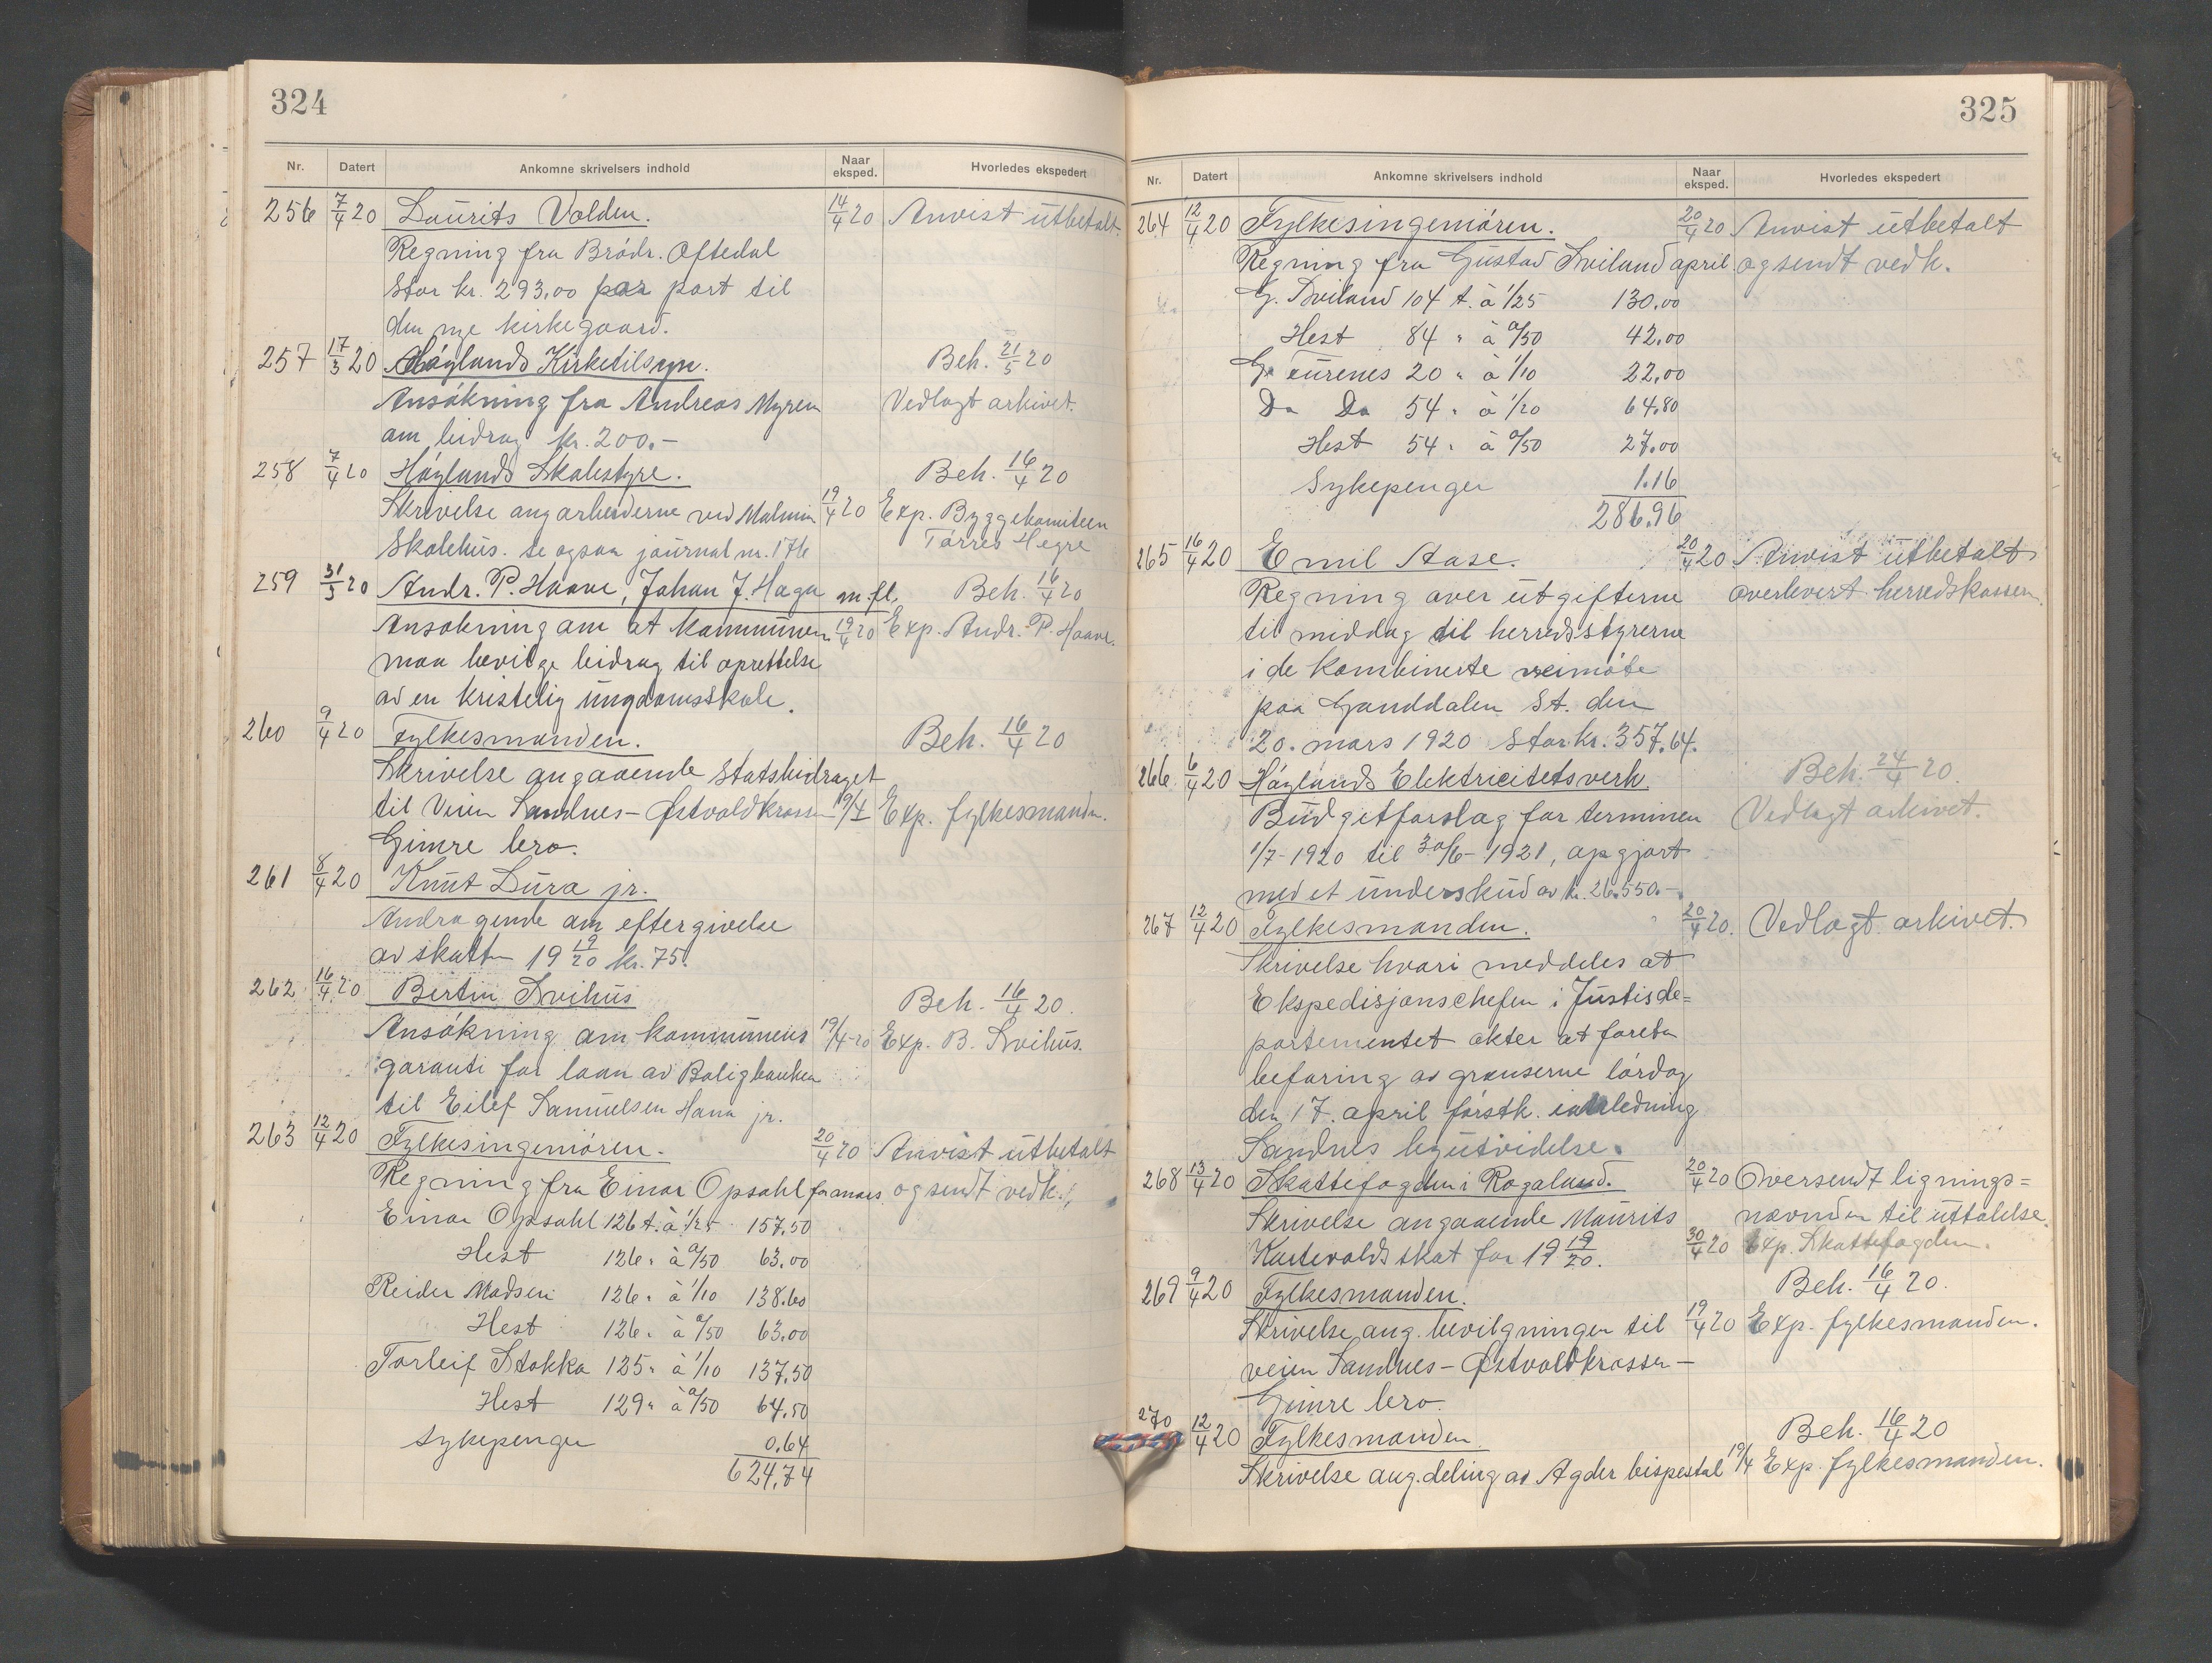 324
Nr. Datert Ankomne skrivelsers indhold Naar eksped. Hvorledes ekspedert
256 7/4 20 Laurits Valden. 14/4 20 Anvist utbetalt.
Regning fra Brödr. Oftedal
Stor kr. 293,00 for port til
den nye kirkegaard.
257 17/3 20 Höylands Kirketilsyn. Beh. 21/5 20
Ansökning fra Andreas Myren Vedlagt arkivet.
om bidrag kr. 200.-
258 7/4 20 Höylands Skolestyre. Beh. 16/4 20
Skrivelse ang arbeiderne ved Malmin 19/4 20 Exp. Byggekomiteen
Skolehus. Se ogsaa journal nr. 176 Torres Hegre
259 31/3 20 Andr. P. Haave, Johan J. Haga m.fl. Beh. 16/4 20
Ansökning om at kommunen 19/4 20 Exp. Andr. P. Haave.
maa bevilge bidrag til oprettelse
av en kristelig ungdomsskole.
260 9/4 20 Fylkesmanden. Beh. 16/4 20
Skrivelse angaaende Statsbidraget
til Veien Sandnes - Østvoldkrossen 19/4 Exp. fylkesmanden.
Gimre bro.
261 8/4 20 Knut Lura jr.
Andragende om eftergivelse
av skatten 19 19/20 kr. 75.
262 16/4 20 Bertin Svihus Beh. 16/4 20.
Ansökning om kommunens 19/4-20 Exp. B. Svihus.
garanti for laan av Boligbanken
til Eilef Samuelsen Hana jr.
263 12/4 20 Fylkesingeniören. 20/4 20 Anvist utbetalt
Regning fra Einar Opsahl for mars og sendt vedk.
Einar Opsahl 126 t. à 1/25 157,50
Hest 126 " à 0/50 63,00
Reider Madsen 126 " à 1/10 138.60
Hest 126 " à 0/50 63,00
Torleif Stokka 125 " à 1/10 137,50
Hest 129 " à 0/50 64,50
Sykepenger 0,64
624,74
325
Nr. Datert Ankomne skrivelsers indhold Naar eksped. Hvorledes ekspedert
264 12/4 20 Fylkesingeniören. 20/4 20 Anvist utbetalt
Regning fra Gustav Sviland april og sendt vedk.
G. Sviland 104 t. à 1/25 130,00
Hest 84 " à 0/50 42,00
G. Turenes 20 " à 1/10 22,00
Do Do 54 " à 1/20 64,80
Hest 54 " à 0/50 27,00
Sykepenger 1.16
286,96
265 16/4 20 Emil Aase. 20/4 20 Anvist utbetalt
Regning over utgifterne overlevert herredskassen.
til middag til herredsstyrerne
i de kombinerte veimöte
paa Ganddalen St. den
20. mars 1920 Stor kr. 357,64.
266 6/4 20 Höylands Elektricitetsverk. Beh. 24/4 20.
Budgetforslag for terminen Vedlagt arkivet.
1/7-1920 til 30/6-1921, opgjort
med et underskud av kr. 26.550.-
267 12/4 20 Fylkesmanden. 20/4 20. Vedlagt arkivet.
Skrivelse hvori meddeles at
Ekspedisjonschefen i Justisde=
partementet akter at foreta
befaring av grænserne lördag
den 17. april förstk. i anledning
Sandnes byutvidelse.
268 13/4 20 Skattefogden i Rogaland. 20/4 20 Oversendt lignings=
Skrivelse angaaende Maurits nævnden til uttalelse.
Kartevolds skat for 19 19/20. 30/4 20 Exp. Skattefogden.
269 9/4 20 Fylkesmanden. Beh. 16/4 20.
Skrivelse ang. bevilgningen til 19/4 20 Exp. fylkesmanden.
veien Sandnes - Østvoldkrossen -
Gimre bro.
270 12/4 20 Fylkesmanden Beh. 16/4 20
Skrivelse ang. deling av Agder bispestol 19/4 Exp. fylkesmanden.